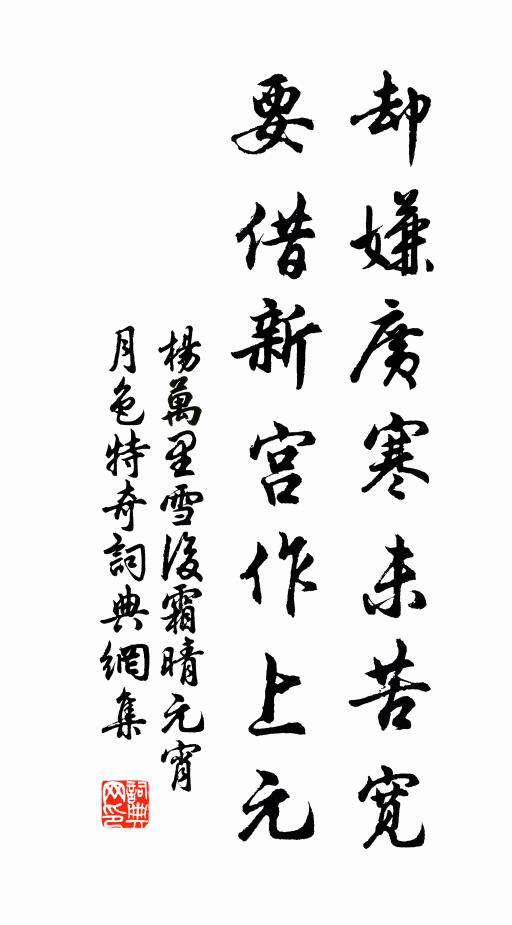 却嫌廣寒未苦寬
要借新宫作上元
楊萬里雪後霜晴元宵
月色特奇詞典網集
詞典网印